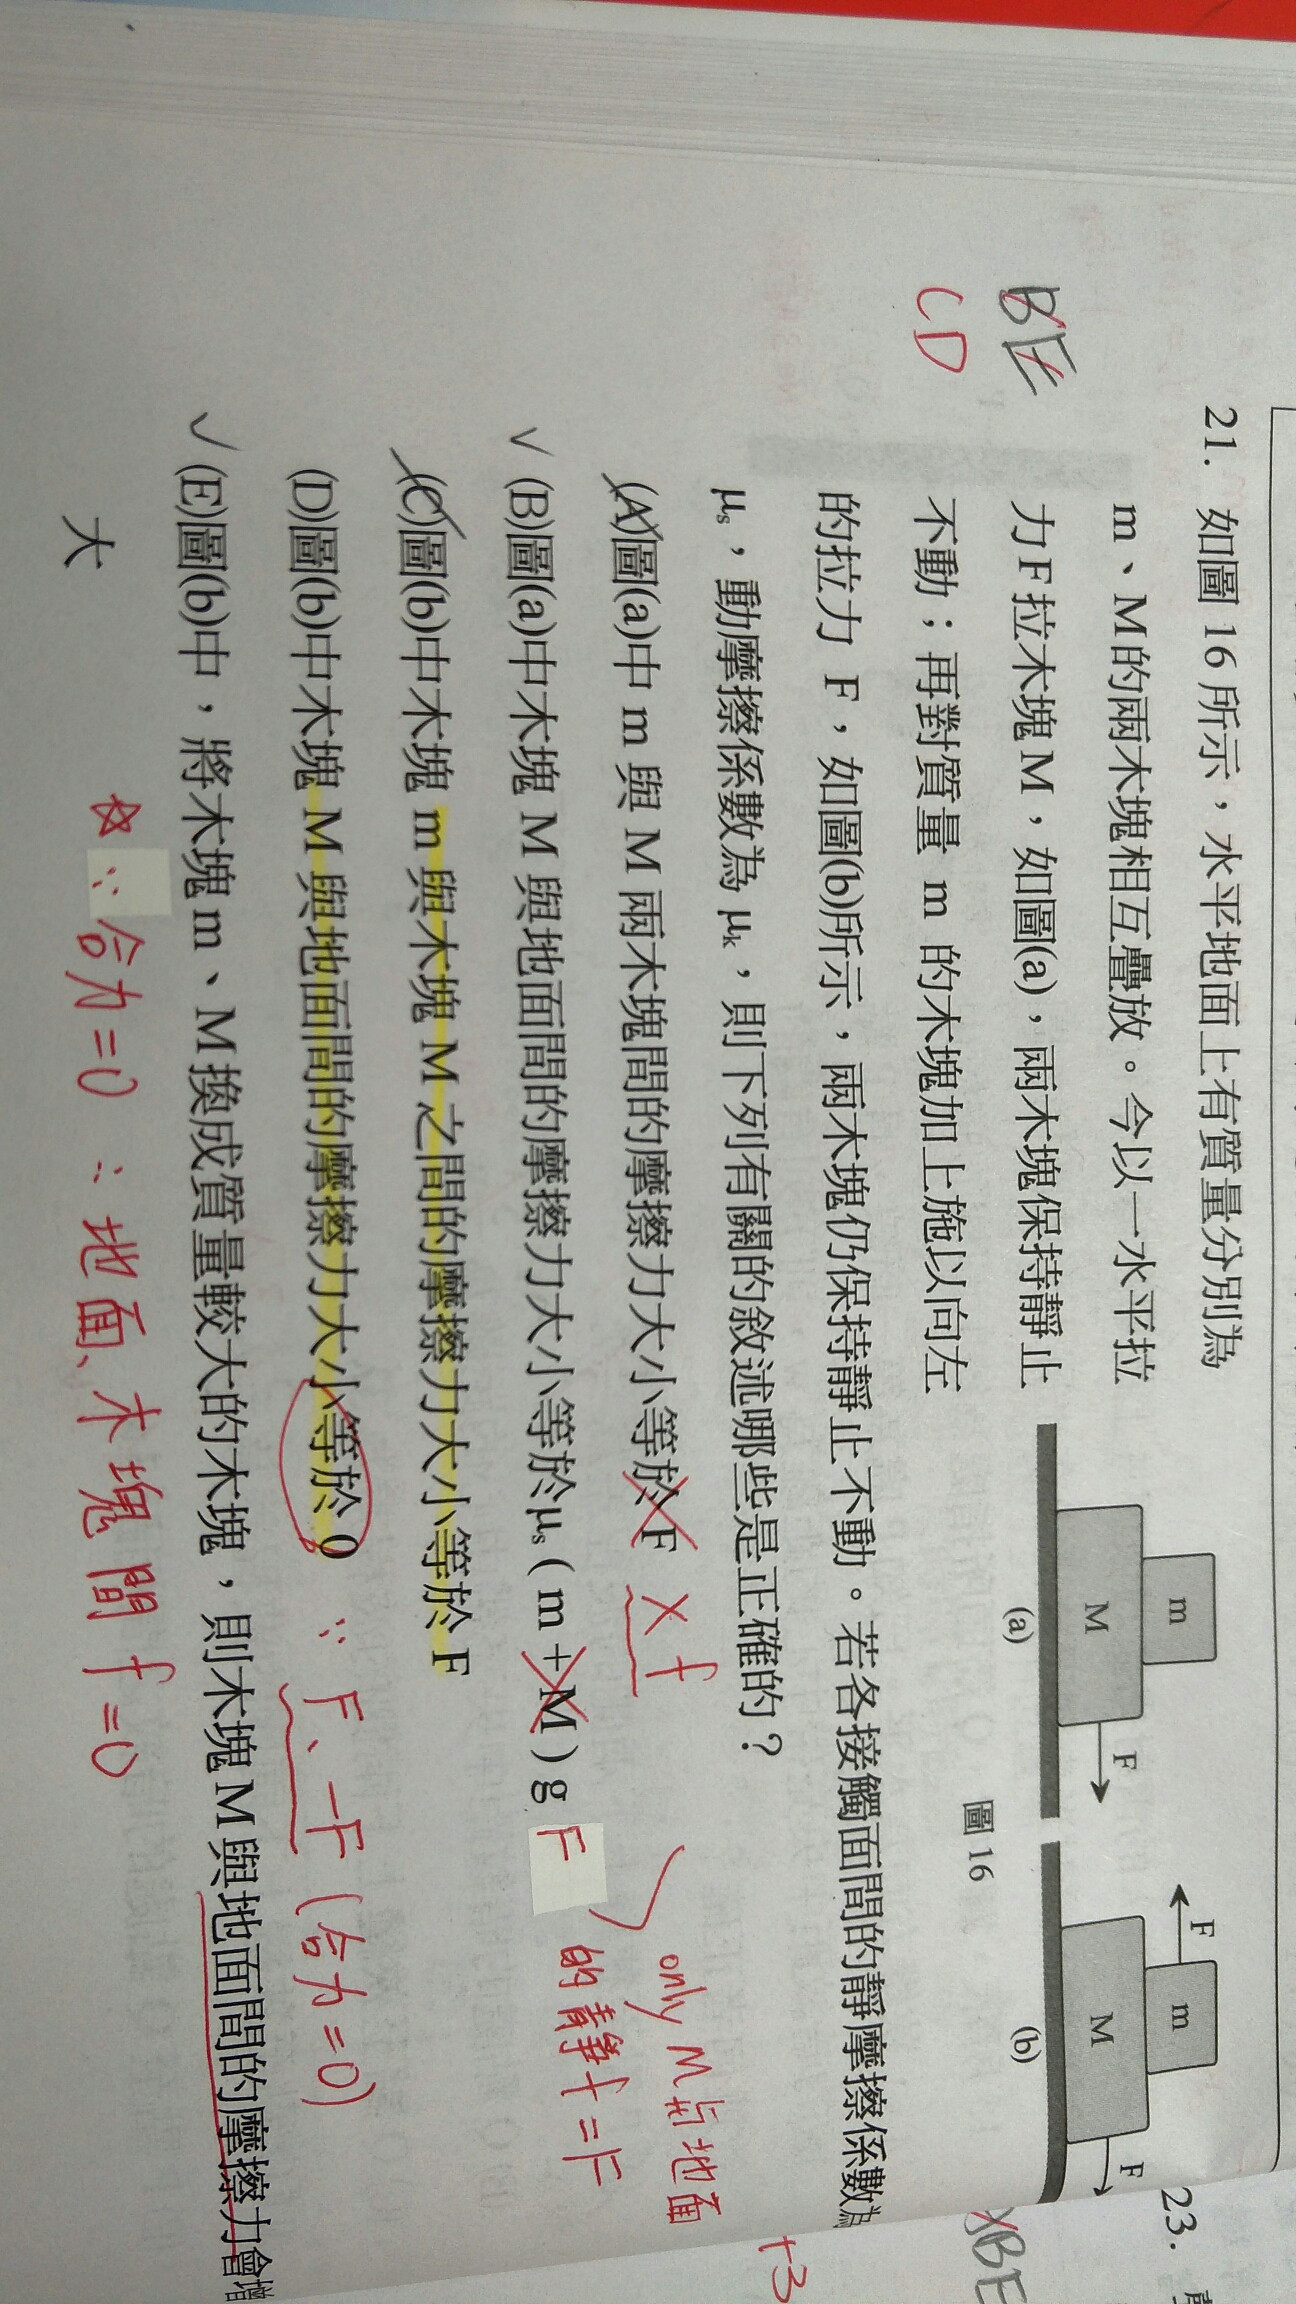 BE
CD
21. 如圖 16 所示，水平地面上有質量分別為
m、M 的兩木塊相互疊放。今以一水平拉
力 F 拉木塊 M，如圖(a)，兩木塊保持靜止
不動；再對質量 m 的木塊加上施以向左
的拉力 F，如圖(b)所示，兩木塊仍保持靜止不動。若各接觸面間的靜摩擦係數為
μs，動摩擦係數為 μk，則下列有關的敘述哪些是正確的？
m
M
F
(a)
F
m
M
F
(b)
圖 16
(A)圖(a)中 m 與 M 兩木塊間的摩擦力大小等於 F
X f
(B)圖(a)中木塊 M 與地面間的摩擦力大小等於 μs ( m + M ) g
F
only M與地面
的靜f=F
(C)圖(b)中木塊 m 與木塊 M 之間的摩擦力大小等於 F
(D)圖(b)中木塊 M 與地面間的摩擦力大小等於 0
∵ F、-F (合力=0)
(E)圖(b)中，將木塊 m、M 換成質量較大的木塊，則木塊 M 與地面間的摩擦力會增
大
☆ ∵ 合力=0 ∴ 地面、木塊間 f=0
23.
BE
+3